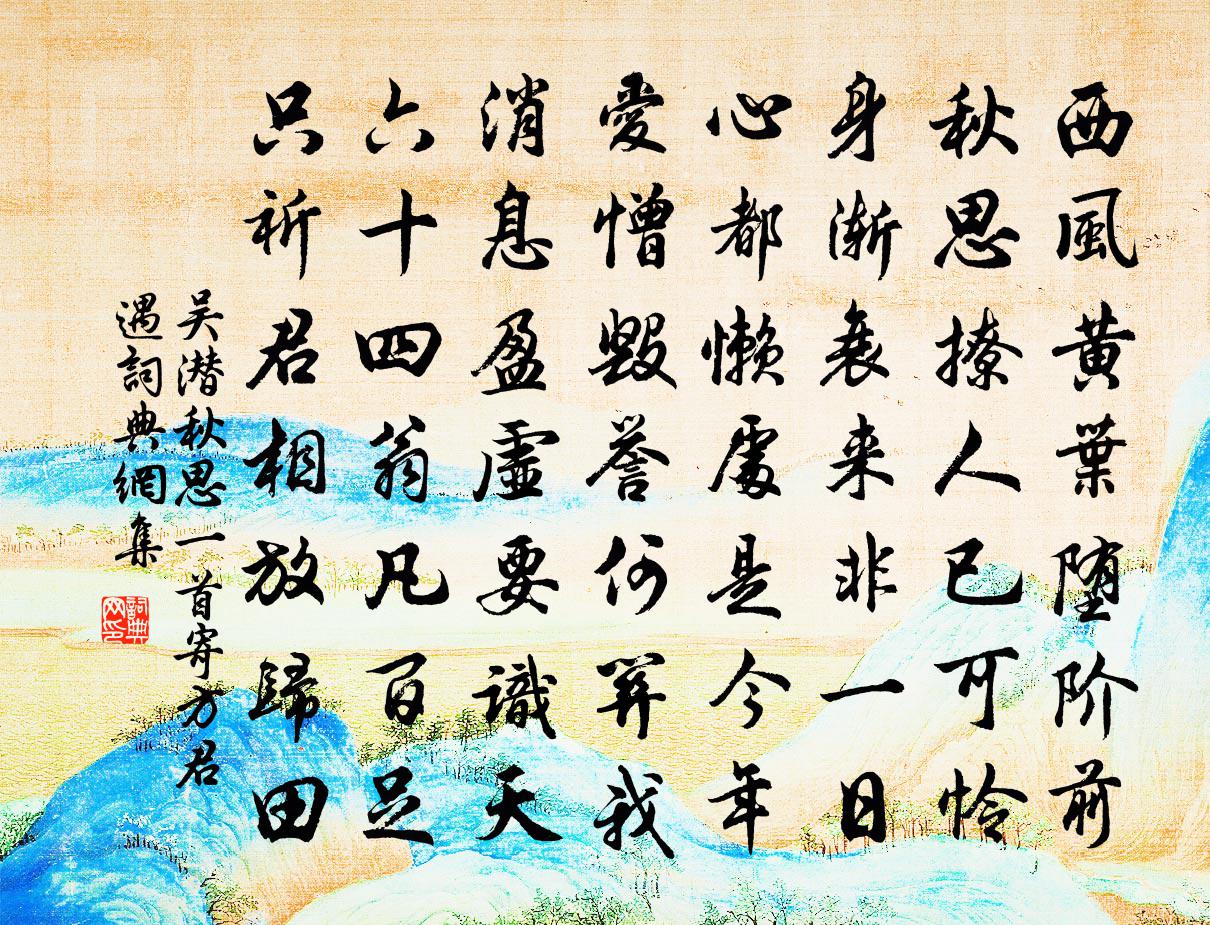 西風黄葉堕阶前
秋思撩人已可怜
身渐衰来非一日
心都懒處是今年
愛憎毀譽何關我
消息盈虛要識天
六十四翁凡百足
只祈君相放歸田
吴潜秋思一首寄方君
遇詞典網集
詞典网印